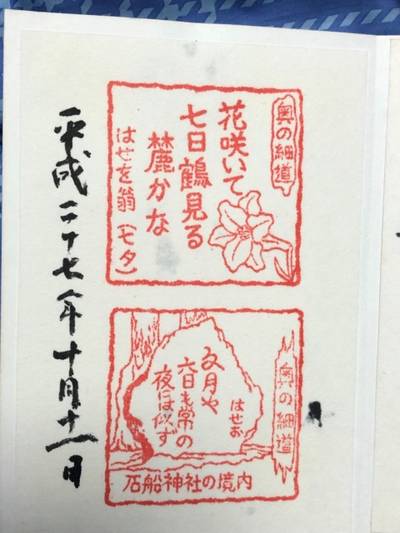 奥の細道
花咲いて
七日鶴見る
麓かな
はせを翁(七夕)
奥の細道
はせお
文月や
六日も常の
夜には似ず
石船神社の境内
平成二十七年十月十一日